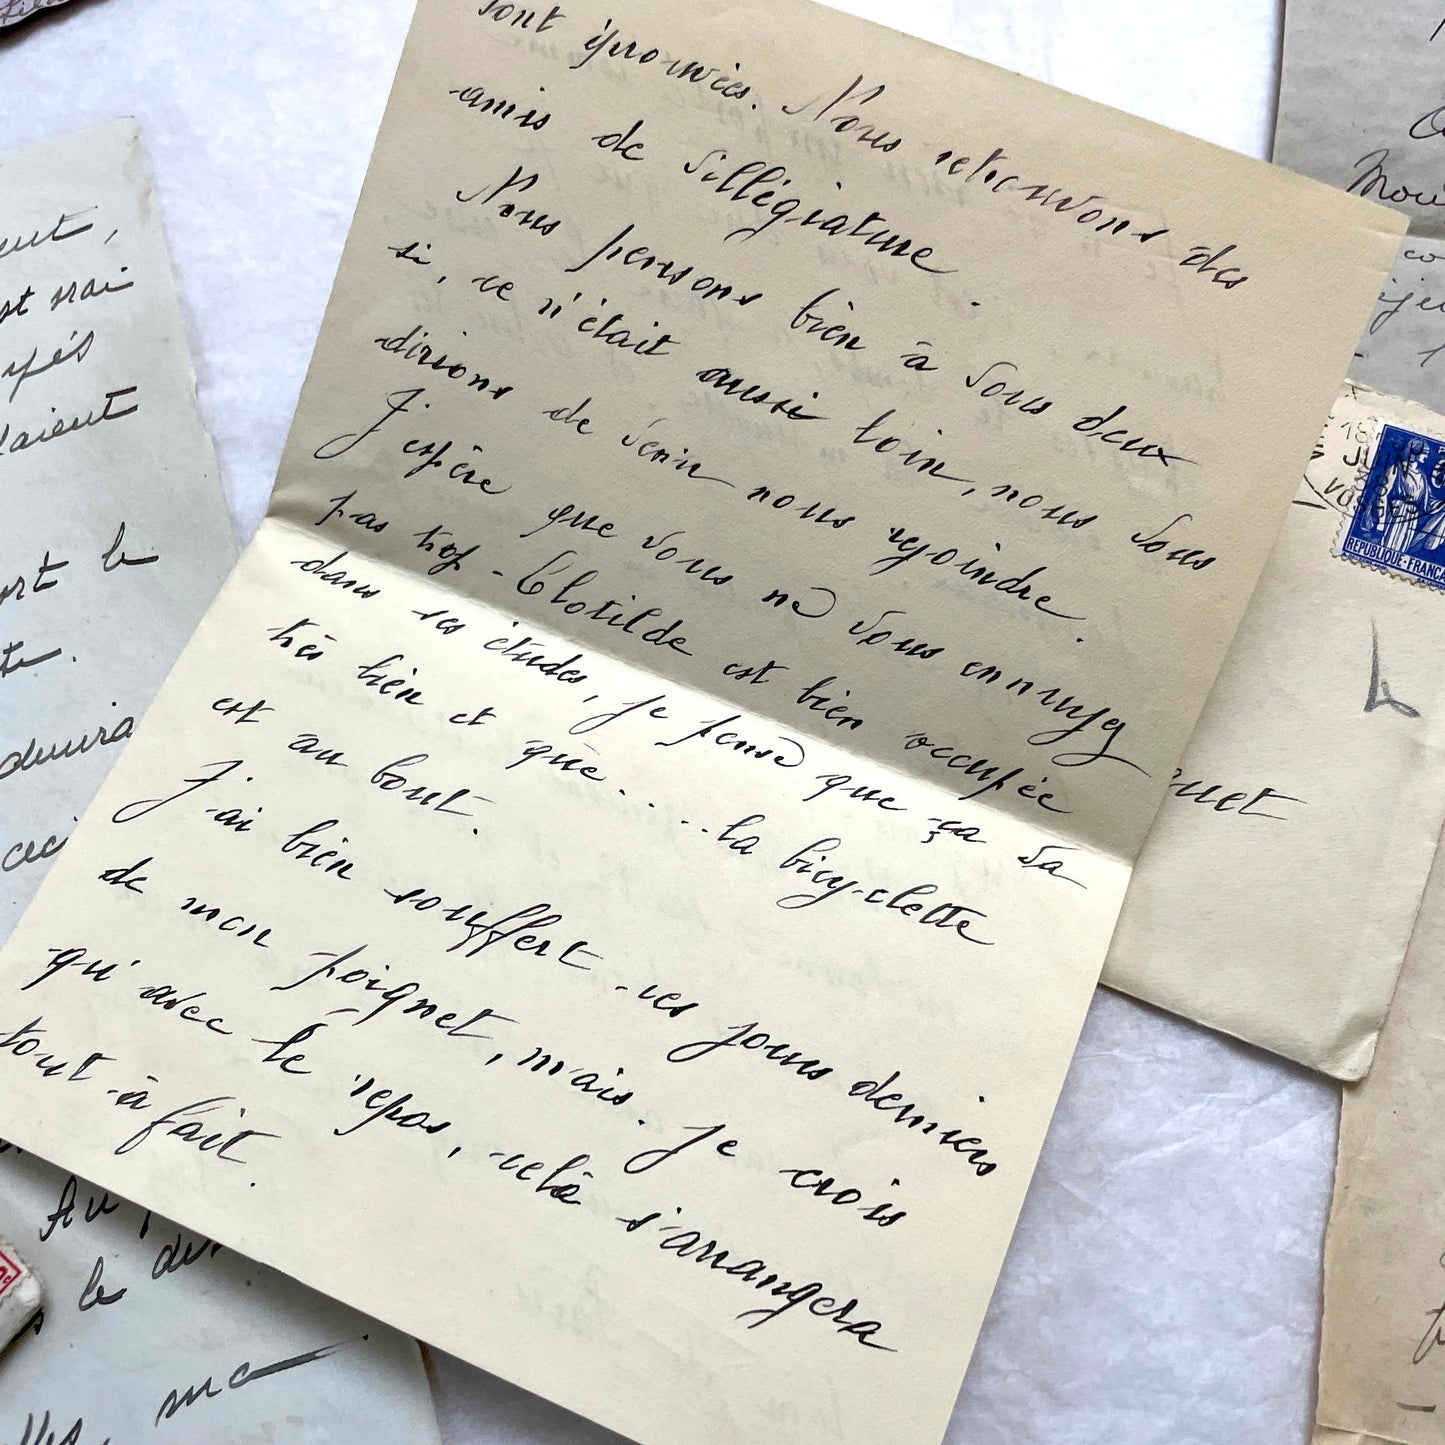 sont éprouvées. Nous retrouvons des
amis de villégiature
Nous pensons bien à vous deux
si, ce n'était aussi loin, nous vous
dirions de venir nous rejoindre.
J'espère que vous ne vous ennuyez
pas trop - Clotilde est bien occupée
dans ses études, je pense que ça va
très bien et que..... la bicyclette
est au bout.
J'ai bien souffert ces jours derniers
de mon poignet, mais je crois
qu'avec le repos, cela s'arrangera
tout à fait.
est vrai
le
ceci
Au
le
JUIN
VOSGES
REPUBLIQUE-FRANÇA